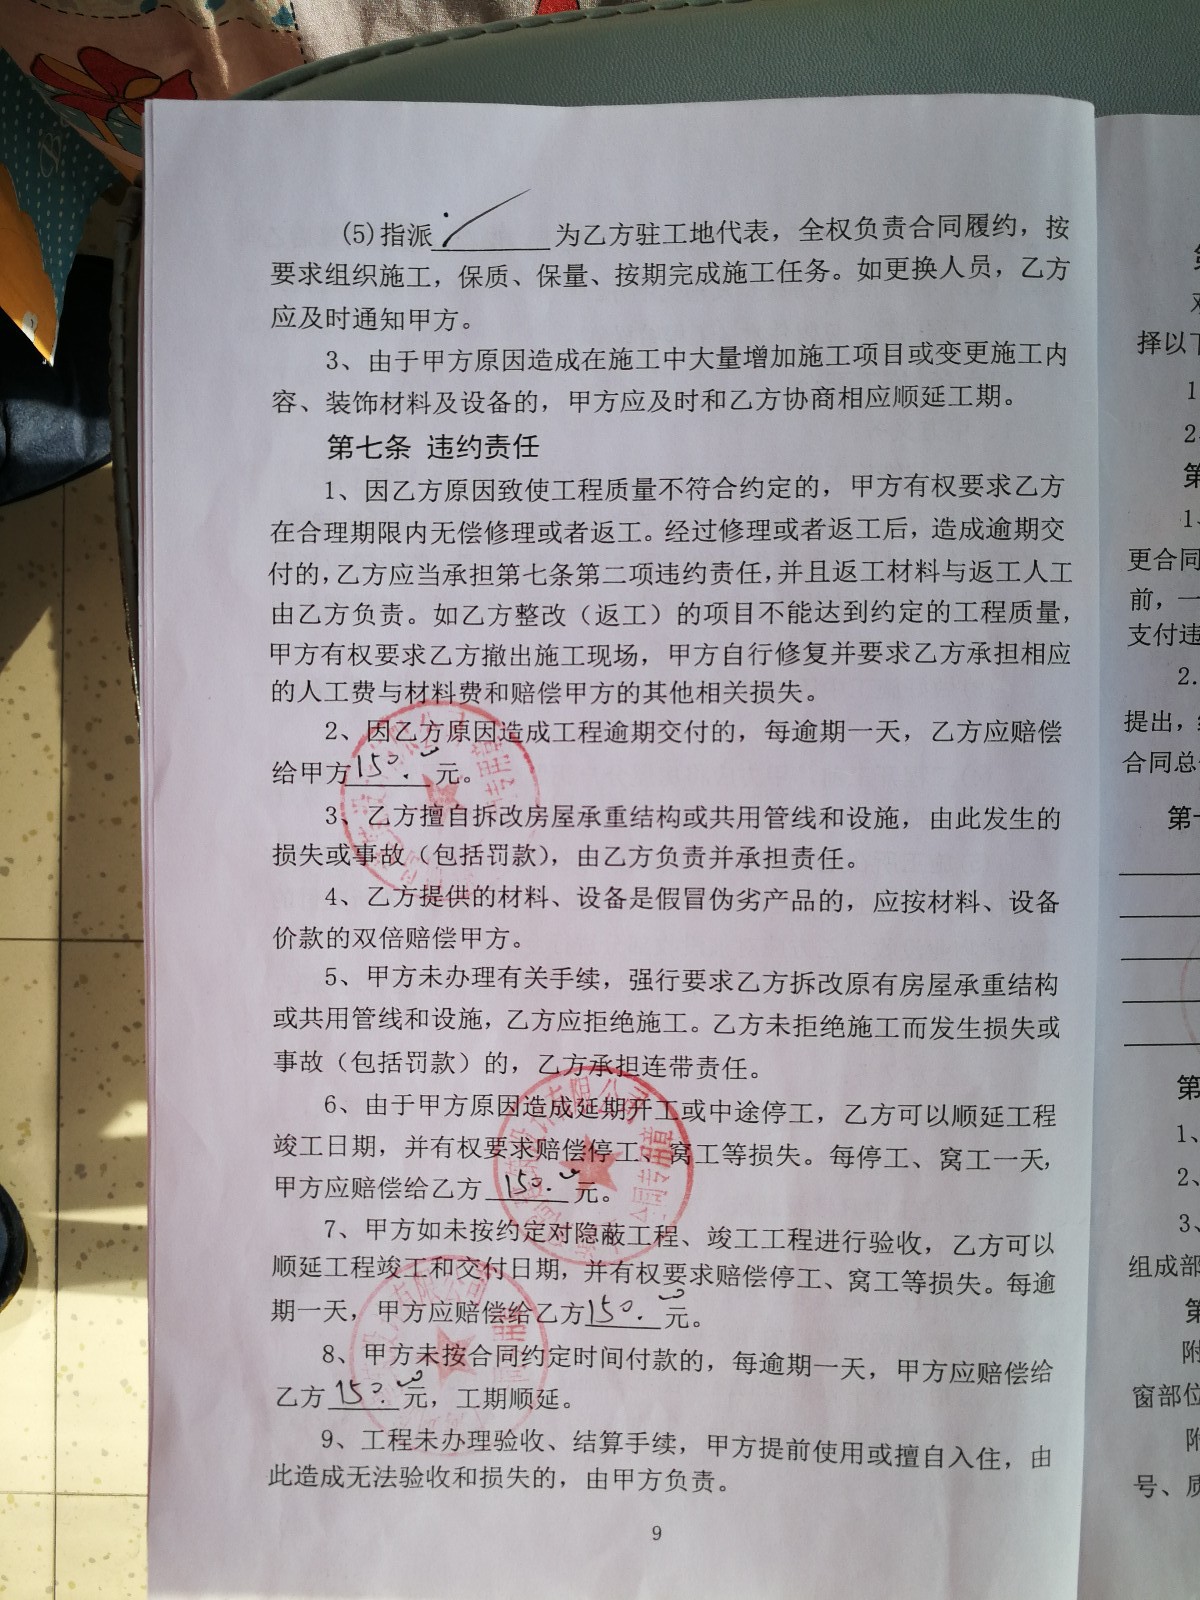 (5)指派 为乙方驻工地代表，全权负责合同履约，按
要求组织施工，保质、保量、按期完成施工任务。如更换人员，乙方
应及时通知甲方。
3、由于甲方原因造成在施工中大量增加施工项目或变更施工内
容、装饰材料及设备的，甲方应及时和乙方协商相应顺延工期。
第七条 违约责任
1、因乙方原因致使工程质量不符合约定的，甲方有权要求乙方
在合理期限内无偿修理或者返工。经过修理或者返工后，造成逾期交
付的，乙方应当承担第七条第二项违约责任，并且返工材料与返工人工
由乙方负责。如乙方整改（返工）的项目不能达到约定的工程质量，
甲方有权要求乙方撤出施工现场，甲方自行修复并要求乙方承担相应
的人工费与材料费和赔偿甲方的其他相关损失。
2、因乙方原因造成工程逾期交付的，每逾期一天，乙方应赔偿
给甲方150.00元。
3、乙方擅自拆改房屋承重结构或共用管线和设施，由此发生的
损失或事故（包括罚款），由乙方负责并承担责任。
4、乙方提供的材料、设备是假冒伪劣产品的，应按材料、设备
价款的双倍赔偿甲方。
5、甲方未办理有关手续，强行要求乙方拆改原有房屋承重结构
或共用管线和设施，乙方应拒绝施工。乙方未拒绝施工而发生损失或
事故（包括罚款）的，乙方承担连带责任。
6、由于甲方原因造成延期开工或中途停工，乙方可以顺延工程
竣工日期，并有权要求赔偿停工、窝工等损失。每停工、窝工一天，
甲方应赔偿给乙方150.00元。
7、甲方如未按约定对隐蔽工程、竣工工程进行验收，乙方可以
顺延工程竣工和交付日期，并有权要求赔偿停工、窝工等损失。每逾
期一天，甲方应赔偿给乙方150.00元。
8、甲方未按合同约定时间付款的，每逾期一天，甲方应赔偿给
乙方150.00元，工期顺延。
9、工程未办理验收、结算手续，甲方提前使用或擅自入住，由
此造成无法验收和损失的，由甲方负责。
9
择以下
1
2.
第
1.
更合同
前，一
支付违
2.
提出，
合同总
第十
第
1、
2、
3、
组成部
第
附
窗部位
附
号、质